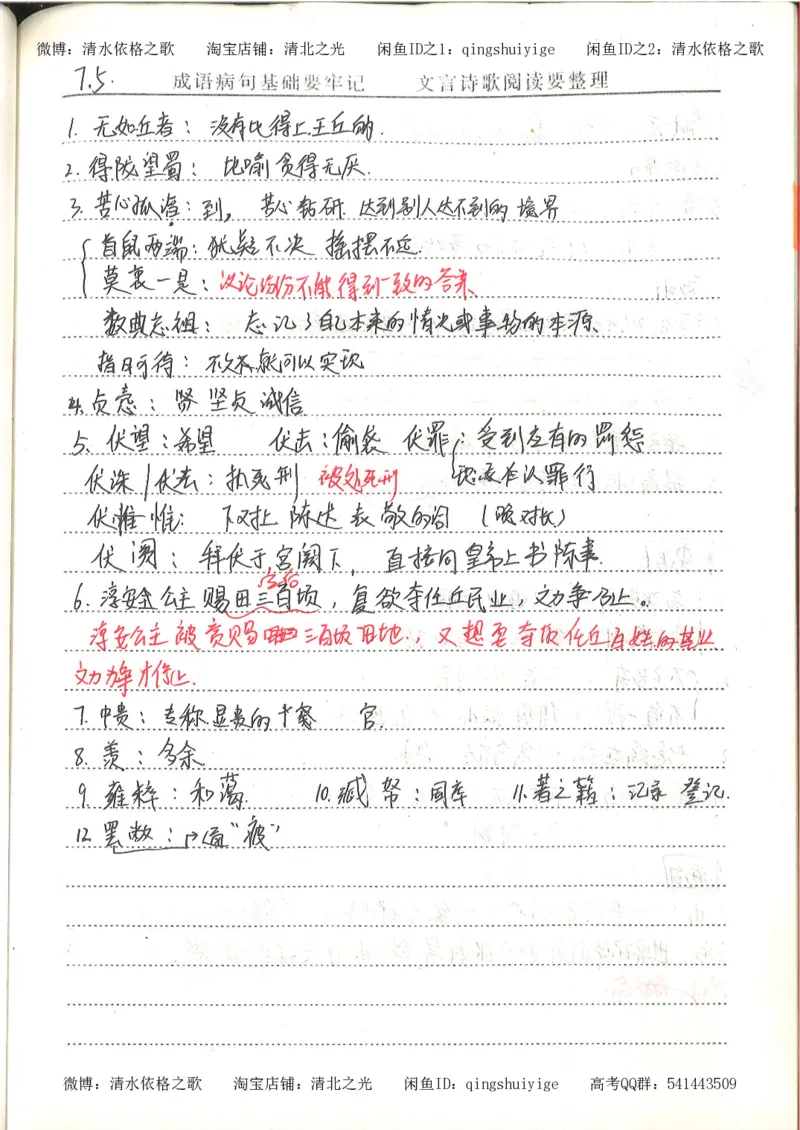 微博：清水依格之歌 淘宝店铺：清北之光 闲鱼ID之1：qingshuiyige 闲鱼ID之2：清水依格之歌
7.5. 成语病句基础要牢记 文言诗歌阅读要整理
1. 无如丘者：没有比得上王丘的.
2. 得陇望蜀：比喻贪得无厌.
3. 苦心孤诣：到，苦心钻研 达到别人达不到的境界
首鼠两端：犹疑不决 摇摆不定.
莫衷一是：议论纷纷不能得到一致的答案.
数典忘祖：忘记了自己本来的情况或事物的本源、
指日可待：不久就可以实现
4. 贞悫：贤 坚贞 诚信
5. 伏望：希望 伏击：偷袭 伏罪：受到应有的罚惩
伏诛/伏法：执死刑 被处死刑 认罪行
伏惟 惟：下对上陈述表敬的词（晚对长）
伏阙：拜伏于宫阙下，直接向皇帝上书陈事.
6. 淳安公主赐田三百顷，复欲夺任丘民业，文力争乃止。
淳安公主被赏赐三百顷田地，又想要夺取任丘百姓的基业
文力争才停止.
7. 中贵：专称显贵的 官.
8. 羡：多余
9. 雍粹：和蔼 10. 臧帑：国库 11. 著之籍：记录 登记.
12. 罢敝：→通“疲”
微博：清水依格之歌 淘宝店铺：清北之光 闲鱼ID：qingshuiyige 高考QQ群：541443509